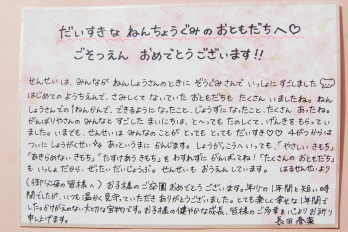 だいすきな ねんちょうぐみの おともだちへ♡
ごそつえん おめでとうございます!!
せんせいは、みんなが ねんしょうさんのときに ぞうぐみさんで いっしょに すごしました
はじめての ようちえんで、さみしくて ないていた おともだちも たくさん いましたね。ねん
しょうさんでの1ねんかんで、できるようになったこと、じょうずになったこと、たくさん あったね。
がんばりやさんの みんなと すごした まいにちは、と〜っても たのしくて、げんきを もらってい
ました。いまでも、せんせいは みんなのことが とっても とっても だいすき♡♡ 4がつからは
ついに しょうがくせい あっというまに かんじます。しょうがっこうへ いっても、「やさしい きもち」
「あきらめない きもち」「たすけあう きもち」を わすれずに がんばってね!「たくさんの おともだち」
も いっしょ だから、ぜったい だいじょうぶ。せんせいも おうえん しています。 はるせんせいより
〈御父母の皆様へ〉お子様のご卒園おめでとうございます。年少の1年間と短い時
間でしたが、いつも温かく見守っていただき ありがとうございました。とても楽しく幸せな1年間で
した。かけがえのない大切な宝物です。お子様の健やかな成長、皆様のご多幸を心よりお祈り
申し上げます。